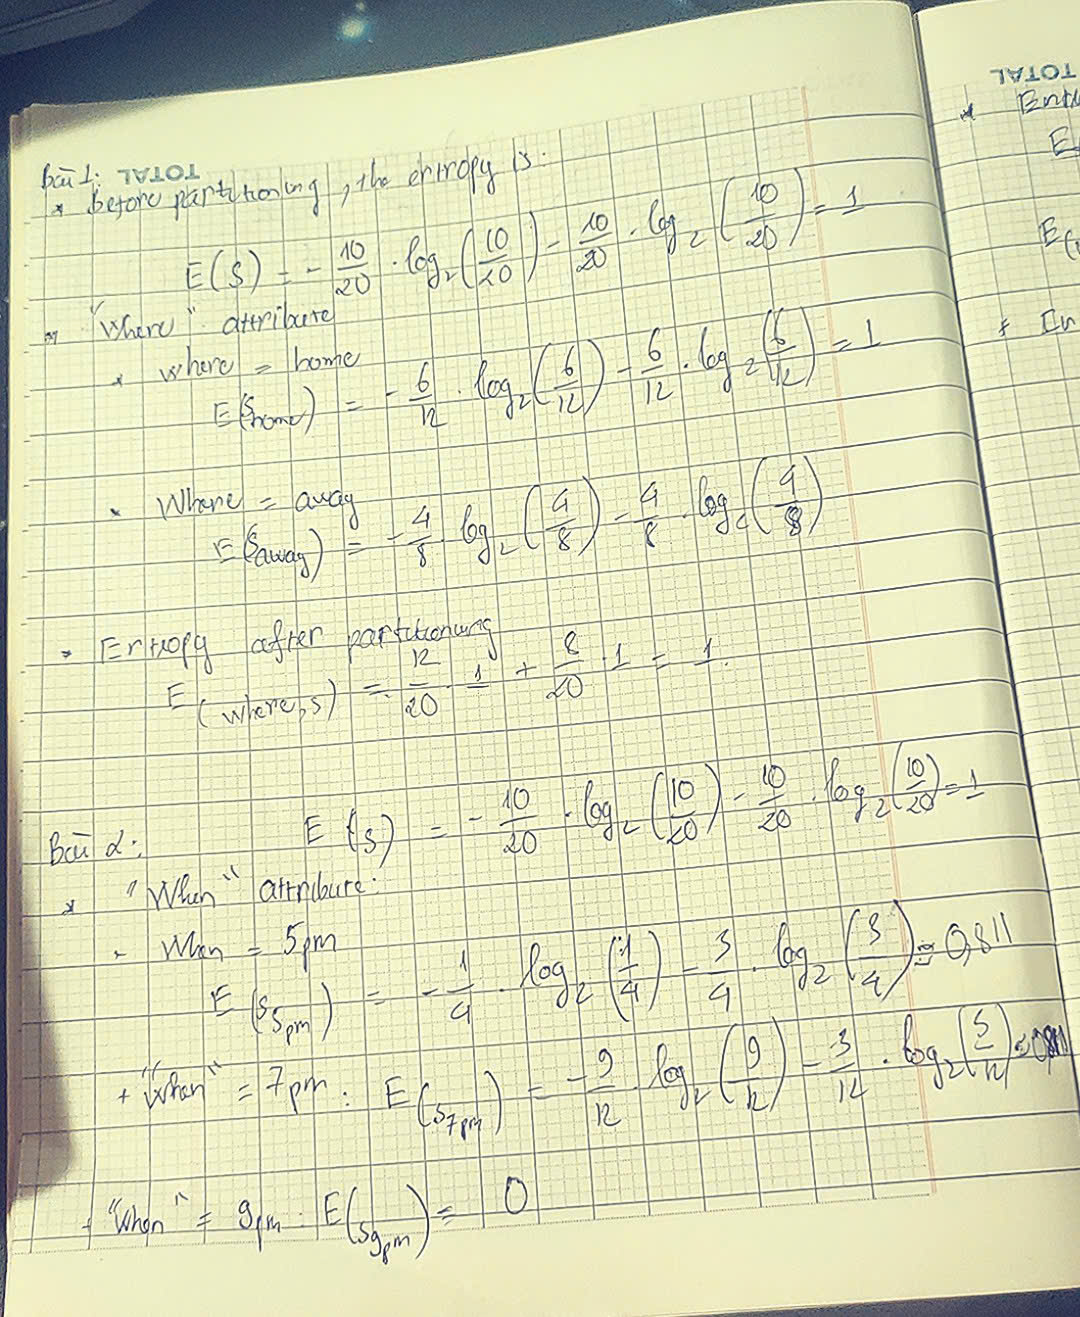 TOTAL
Bài 1:
* Before partitioning, the entropy is:
E(S) = - 10/20 . log₂(10/20) - 10/20 . log₂(10/20) = 1
* "Where" attribute
* where = home
E(S home) = - 6/12 . log₂(6/12) - 6/12 . log₂(6/12) = 1
- Where = away
E(S away) = - 4/8 . log₂(4/8) - 4/8 . log₂(4/8)
* Entropy after partitioning
E(where, s) = 12/20 . 1 + 8/20 . 1 = 1.
Bài 2: E(S) = - 10/20 . log₂(10/20) - 10/20 . log₂(10/20) = 1
* "When" attribute:
- When = 5pm
E(S 5pm) = - 1/4 . log₂(1/4) - 3/4 . log₂(3/4) = 0,811
+ "When" = 7pm : E(S 7pm) = - 9/12 . log₂(9/12) - 3/12 . log₂(3/12) = 0,811
+ "When" = 9pm : E(S 9pm) = 0
TOTAL
*
E
E(
*